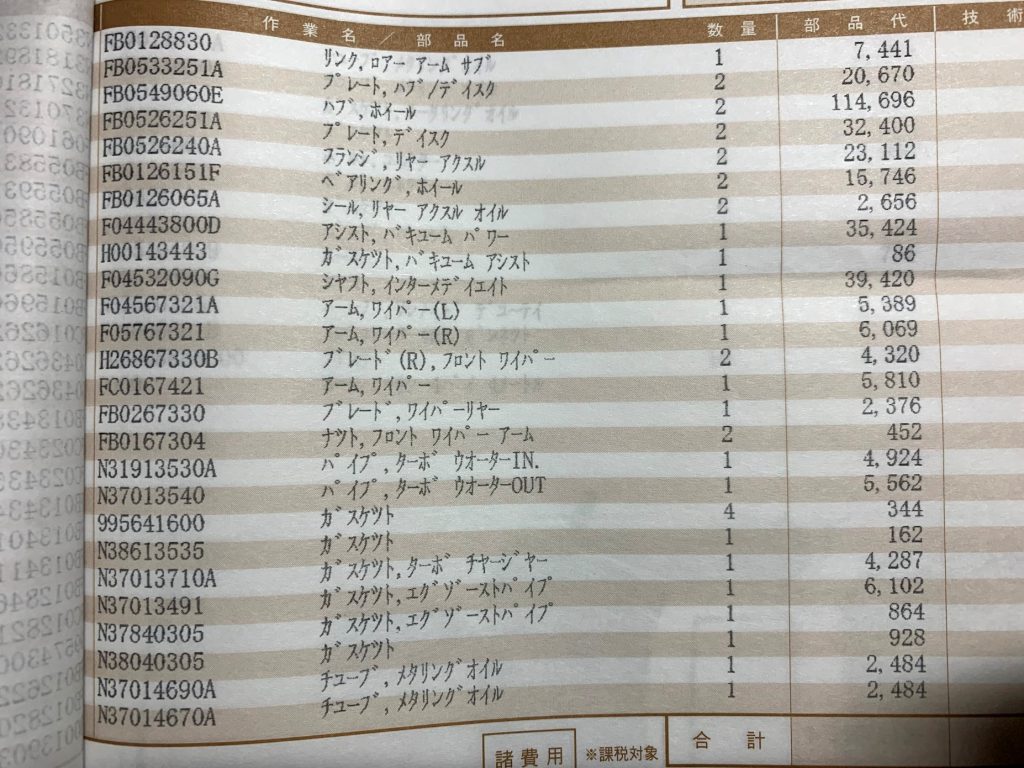 作業名／部品名 数量 部品代 技術
FB0128830 リンク,ロアー アーム サブ 1 7,441
FB0533251A プレート,ハブ/デイスク 2 20,670
FB0549060E ハブ,ホイール 2 114,696
FB0526251A プレート,デイスク 2 32,400
FB0526240A フランジ,リヤー アクスル 2 23,112
FB0126151F ベアリング,ホイール 2 15,746
FB0126065A シール,リヤー アクスル オイル 2 2,656
F04443800D アシスト,バキューム パワー 1 35,424
H00143443 ガスケツト,バキューム アシスト 1 86
F04532090G シャフト,インターメデイエイト 1 39,420
F04567321A アーム,ワイパー(L) 1 5,389
F05767321 アーム,ワイパー(R) 1 6,069
H26867330B ブレード(R),フロント ワイパー 2 4,320
FC0167421 アーム,ワイパー 1 5,810
FB0267330 ブレード,ワイパーリヤー 1 2,376
FB0167304 ナツト,フロント ワイパー アーム 2 452
N31913530A パイプ,ターボ ウオーターIN. 1 4,924
N37013540 パイプ,ターボ ウオーターOUT 1 5,562
995641600 ガスケツト 4 344
N38613535 ガスケツト 1 162
N37013710A ガスケツト,ターボ チャージャー 1 4,287
N37013491 ガスケツト,エグゾーストパイプ 1 6,102
N37840305 ガスケツト,エグゾーストパイプ 1 864
N38040305 ガスケツト 1 928
N37014690A チューブ,メタリングオイル 1 2,484
N37014670A チューブ,メタリングオイル 1 2,484
諸費用 ※課税対象 合計